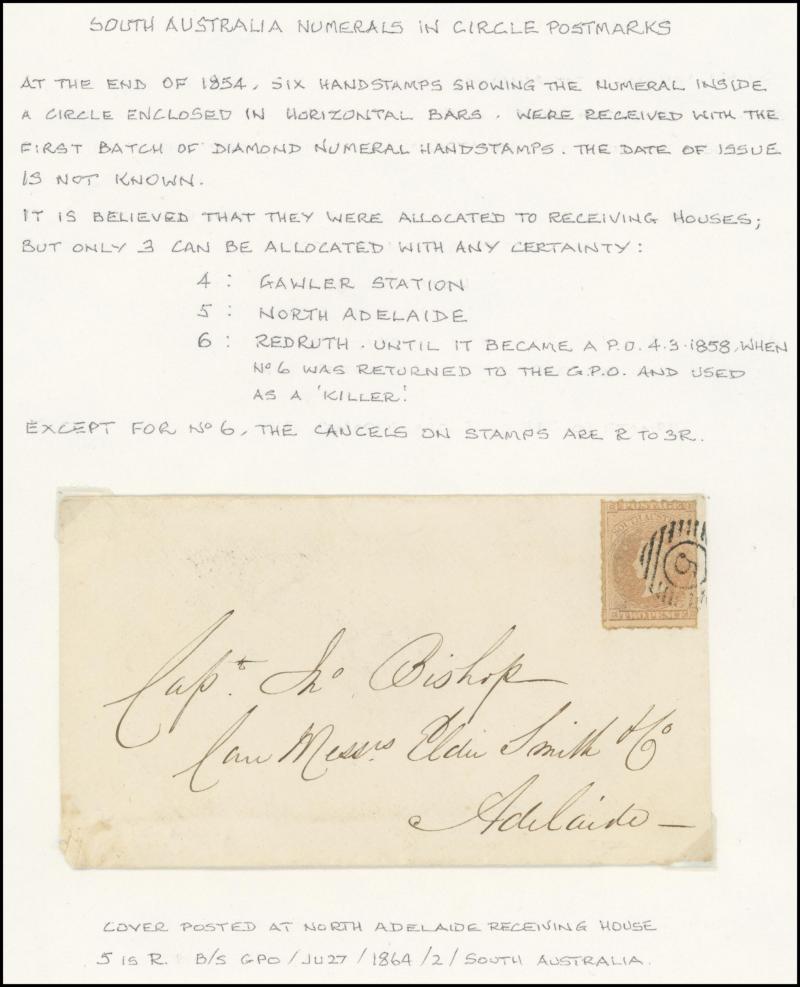 SOUTH AUSTRALIA NUMERALS IN CIRCLE POSTMARKS
AT THE END OF 1854, SIX HANDSTAMPS SHOWING THE NUMERAL INSIDE
A CIRCLE ENCLOSED IN HORIZONTAL BARS, WERE RECEIVED WITH THE
FIRST BATCH OF DIAMOND NUMERAL HANDSTAMPS. THE DATE OF ISSUE
IS NOT KNOWN.
IT IS BELIEVED THAT THEY WERE ALLOCATED TO RECEIVING HOUSES;
BUT ONLY 3 CAN BE ALLOCATED WITH ANY CERTAINTY:
4 : GAWLER STATION
5 : NORTH ADELAIDE
6 : REDRUTH. UNTIL IT BECAME A P.O. 4.3.1858, WHEN
Nº 6 WAS RETURNED TO THE G.P.O. AND USED
AS A 'KILLER'.
EXCEPT FOR Nº 6, THE CANCELS ON STAMPS ARE R TO 3R.
POSTAGE
SOUTH AUSTRALIA
5
TWO PENCE
Capt. Jno Bishop
Care Messrs. Elder Smith & Co
Adelaide
COVER POSTED AT NORTH ADELAIDE RECEIVING HOUSE
5 IS R. B/S GPO/JU27/1864/2/SOUTH AUSTRALIA.